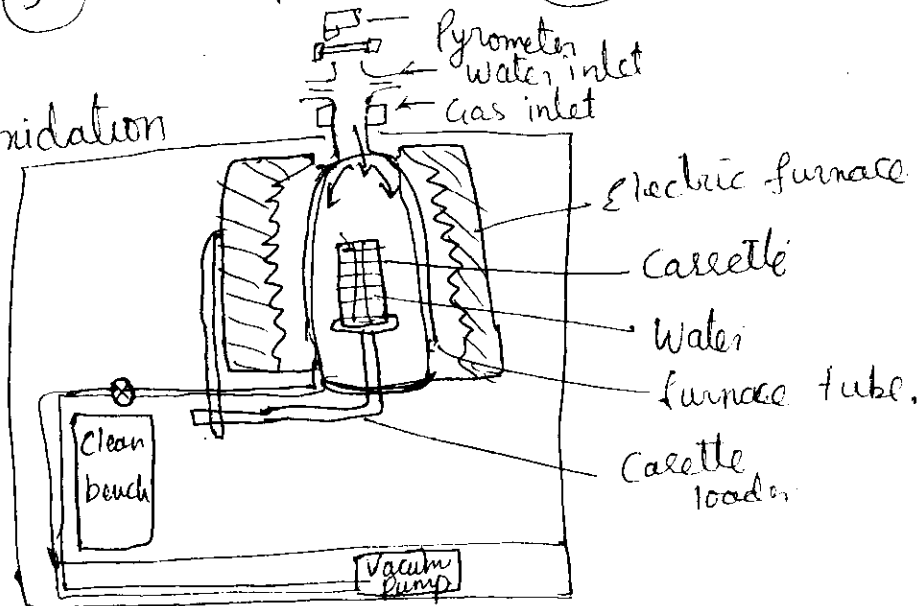 Pyrometer
water inlet
Gas inlet
nidation
Electric furnace
Cassette
Water
furnace tube.
Casette
loader
Clean
bench
Vacum
Pump